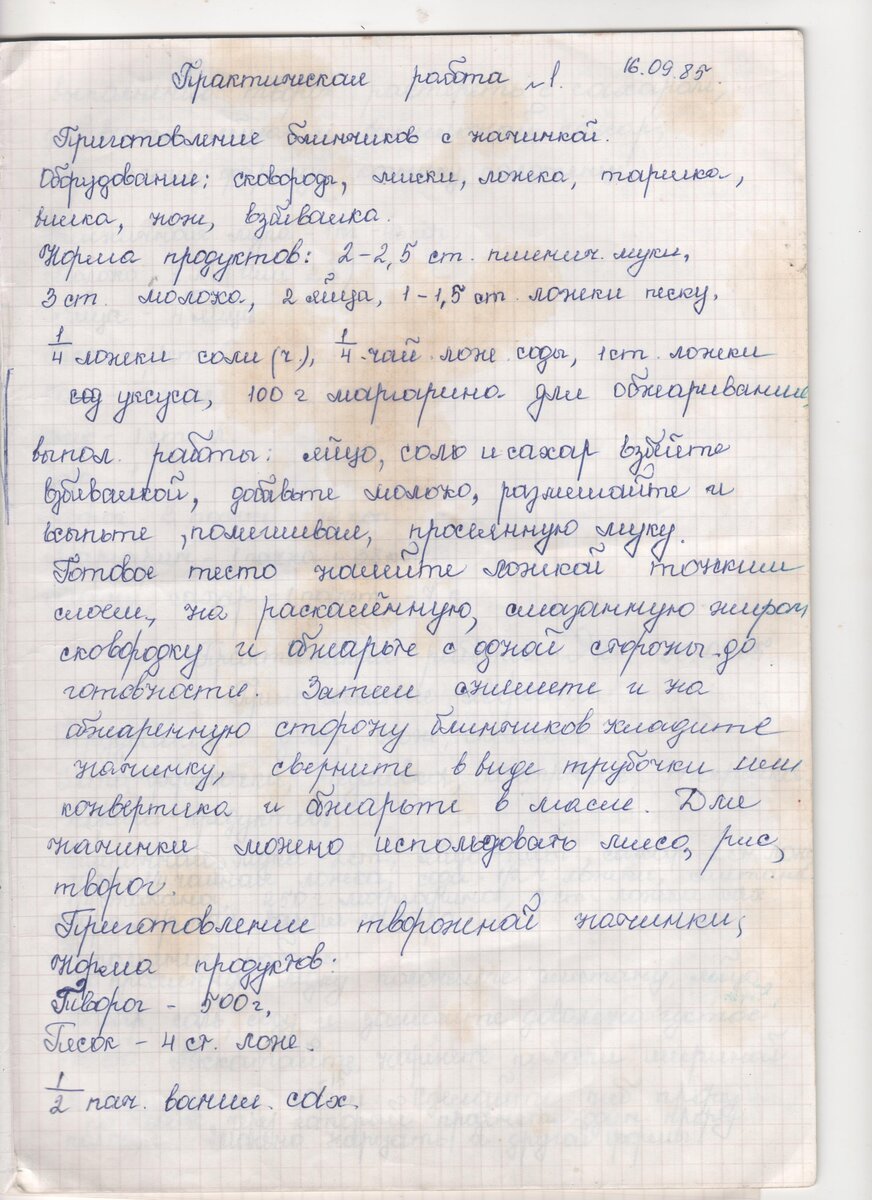 Практическая работа №1. 16.09.85.
Приготовление блинчиков с начинкой.
Оборудование: сковороды, миски, ложка, тарелка,
вилка, нож, взбивалка.
Норма продуктов: 2-2,5 ст. пшенич. муки,
3 ст. молока, 2 яйца, 1-1,5 ст. ложки песку,
1/4 ложки соли (ч.), 1/4 чай. лож. соды, 1 ст. ложки
уксуса, 100 г маргарина для обжаривание,
выпол. работы: яйцо, соль и сахар взбейте
взбивалкой, добавьте молоко, размешайте и
всыпьте, помешивая, просеянную муку.
Готовое тесто налейте ложкой тонким
слоем, на раскалённую, смазанную жиром
сковородку и обжарьте с одной стороны до
готовности. Затем снимете и на
обжаренную сторону блинчиков кладите
начинку, сверните в виде трубочки или
конвертика и обжарьте в масле. Для
начинки можно использовать мясо, рис,
творог.
Приготовление творожной начинки;
Норма продуктов:
Творог - 500 г,
Песок - 4 ст. лож.
1/2 пач. ванил. сах.